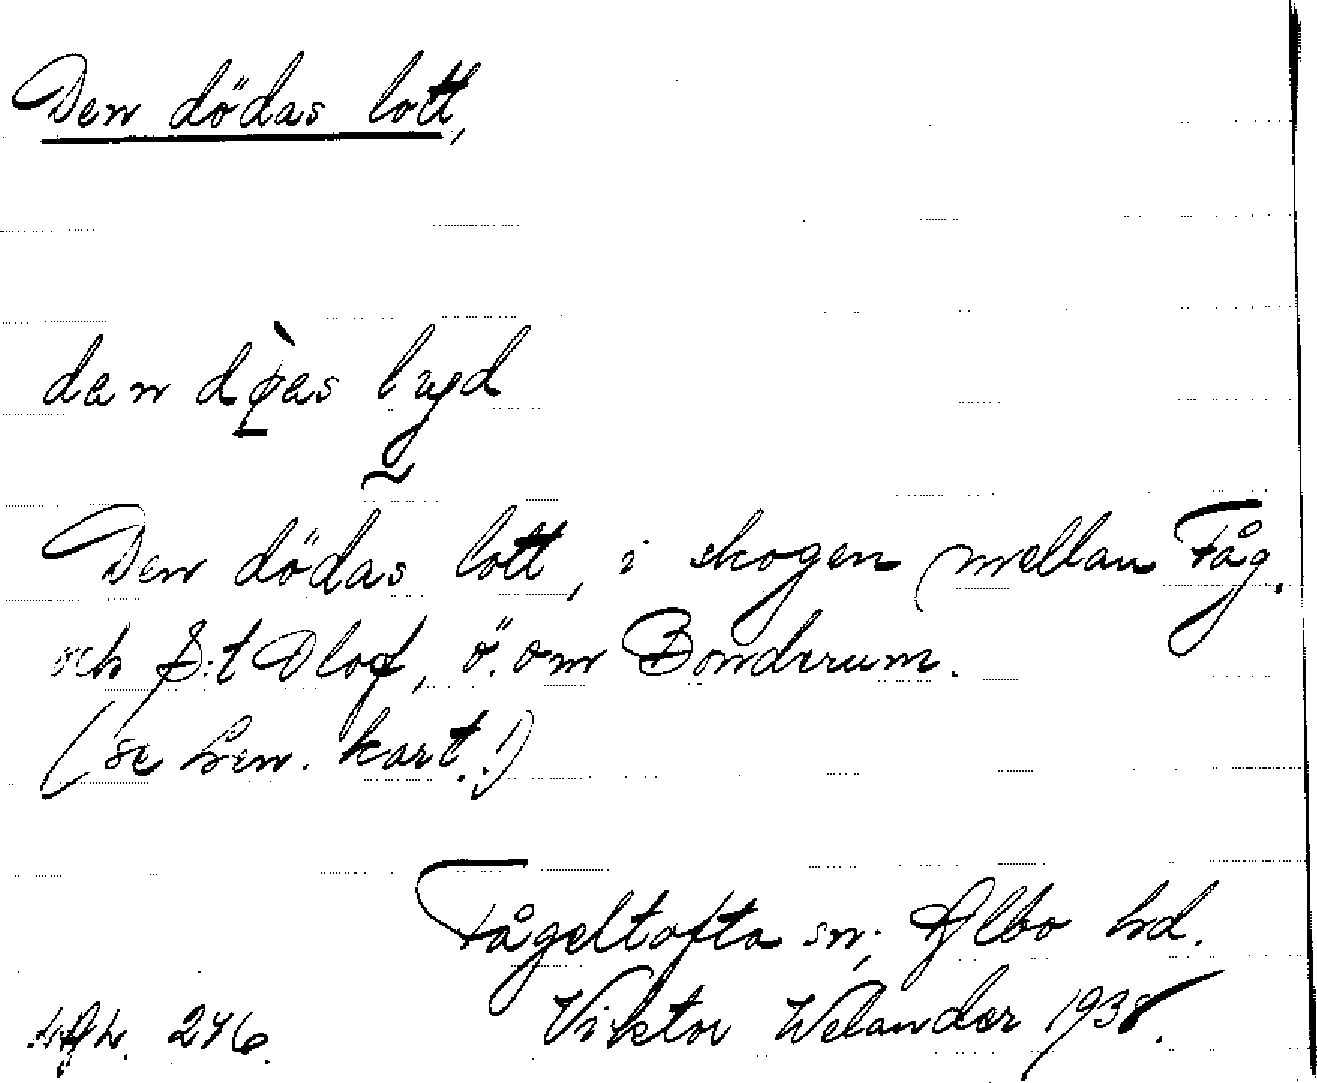 Den dödas lott,
den
Den dödas lott, i skogen mellan Fåg.
och S:t Olof, ö. om Bondrum.
(se hem. kart.!)
Fågeltofta sn; Albo hd.
246. Viktor Welander 1938.